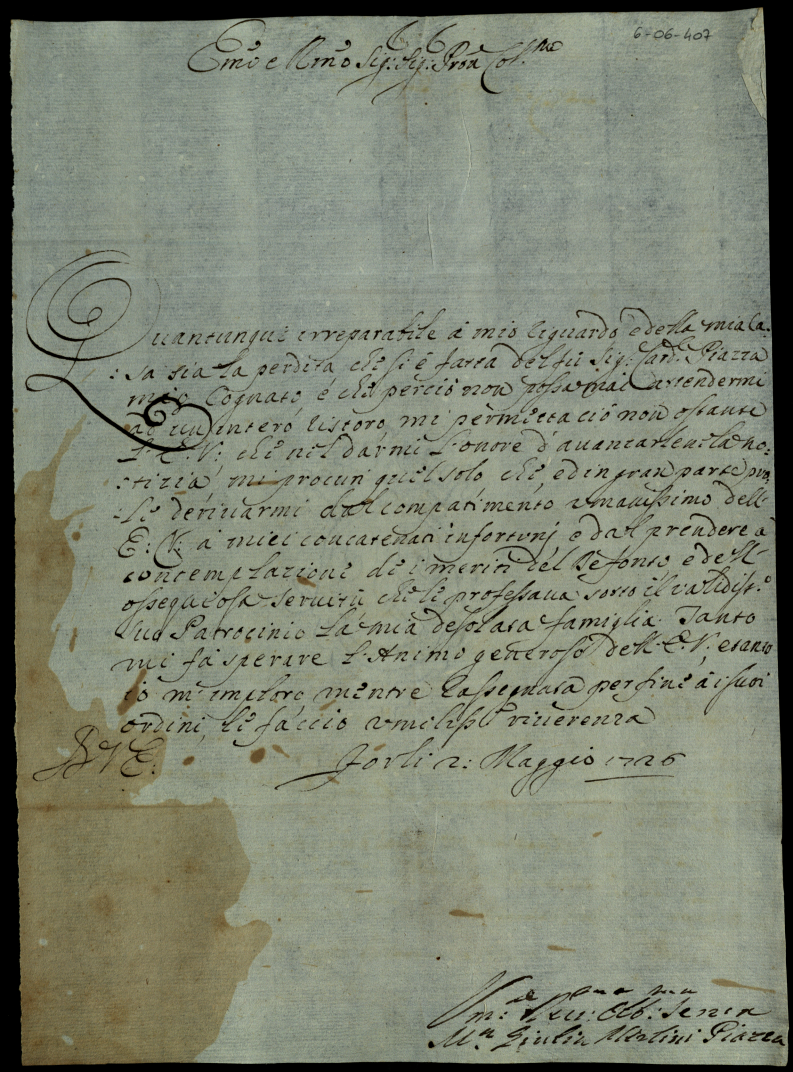 6-06-407
Emo e Rmo Sig: Sig: Pron Col.mo
Quantunque irreparabile à mio riguardo e della mia Ca-
:sa sia la perdita che si è fatta del fù Sig: Card: Piazza
mio Cognato, e che perciò non possa mai attendermi
un intero ristoro, mi permetta ciò non ostante
l'E: V:, che nel darmi l'onore d'avanzarlene la no:
:tizia, mi procuri quel solo che, ed in gran parte può
derivarmi dal compatimento umanissimo dell'
E: V: à miei concatenati infortunj e dal prendere à
contemplazione de i meriti del Defonto, e dell'
ossequiosa servitù che le professava sotto il validiss.o
suo Patrocinio la mia desolata famiglia. Tanto
mi fà sperare l'Animo generoso dell'E: V:, e tanto
io m'imploro mentre rassegnata per fine à i suoi
ordini, le faccio umiliss.a riverenza
D V E:
Forlì 2: Maggio 1726
Um:a Dev:ma Obb:ma Serva
M.a Giulia Merlini Piazza